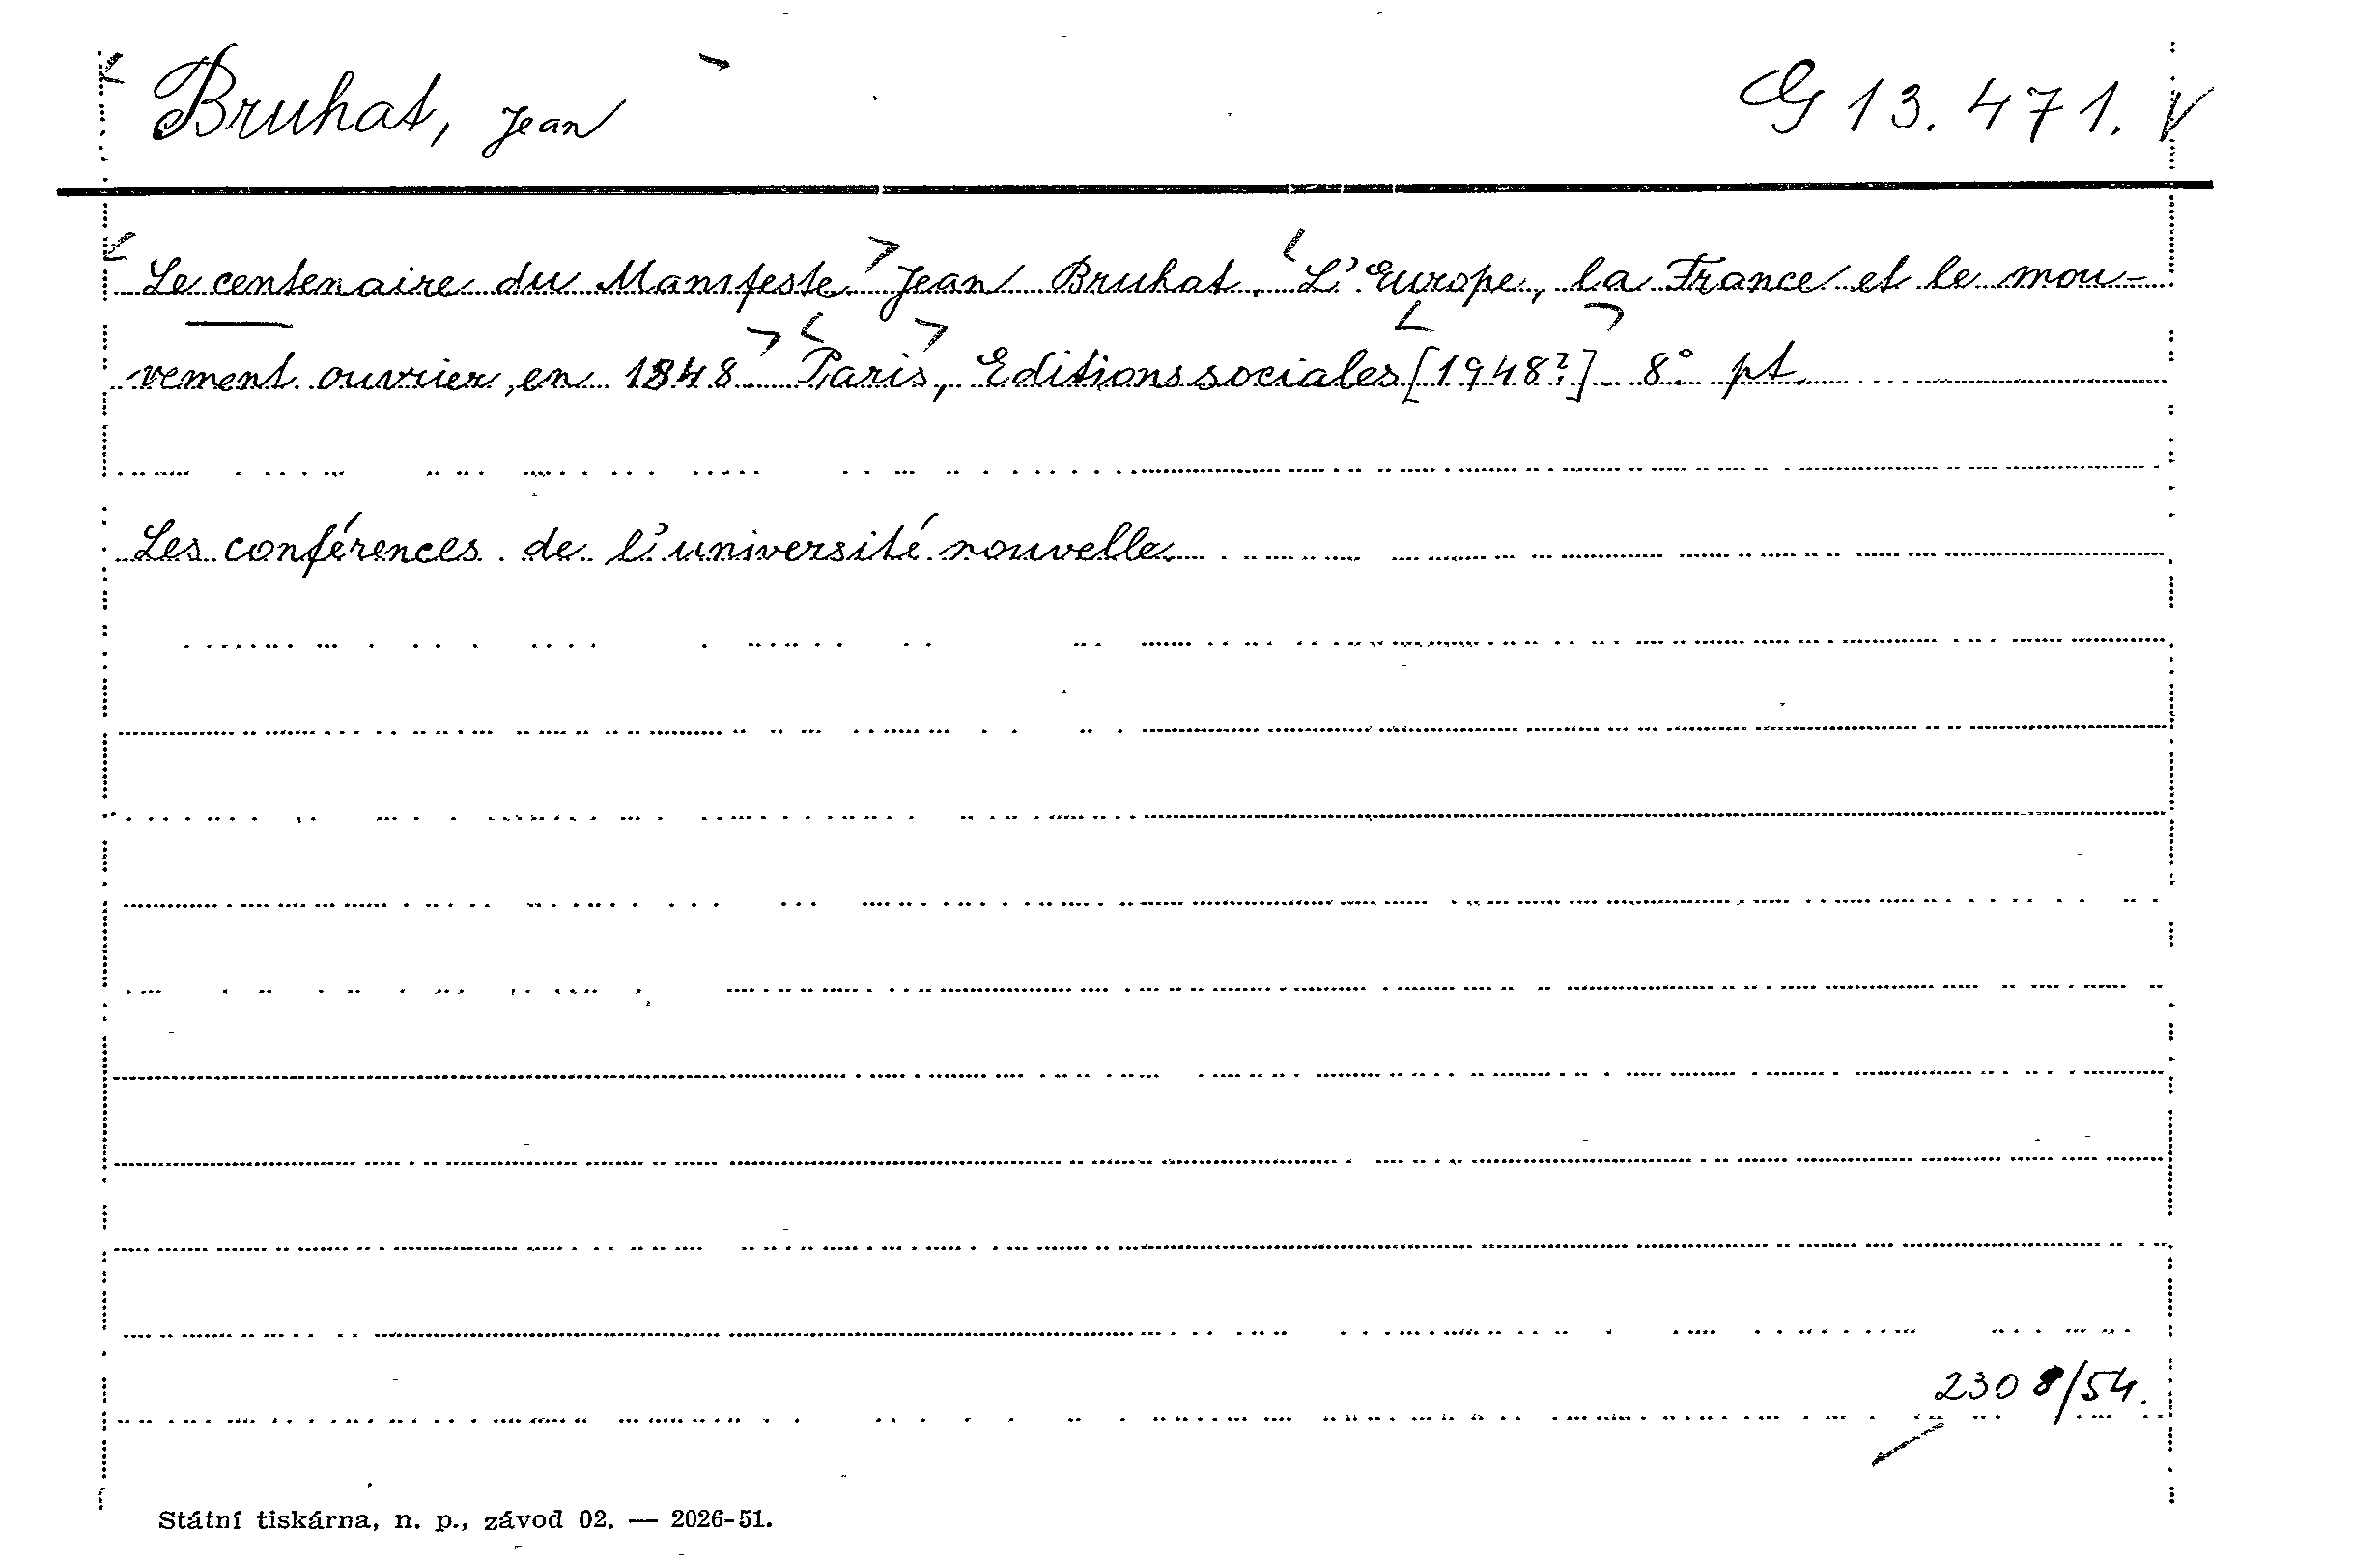 Bruhat, Jean G 13.471. V
Le centenaire du Manifeste Jean Bruhat. L'Europe, la France et le mou-
vement ouvrier en 1848. Paris, Editions sociales [1948?] 8° pt.
Les conférences de l'université nouvelle.
2308/54.
Státní tiskárna, n. p., závod 02. — 2026-51.